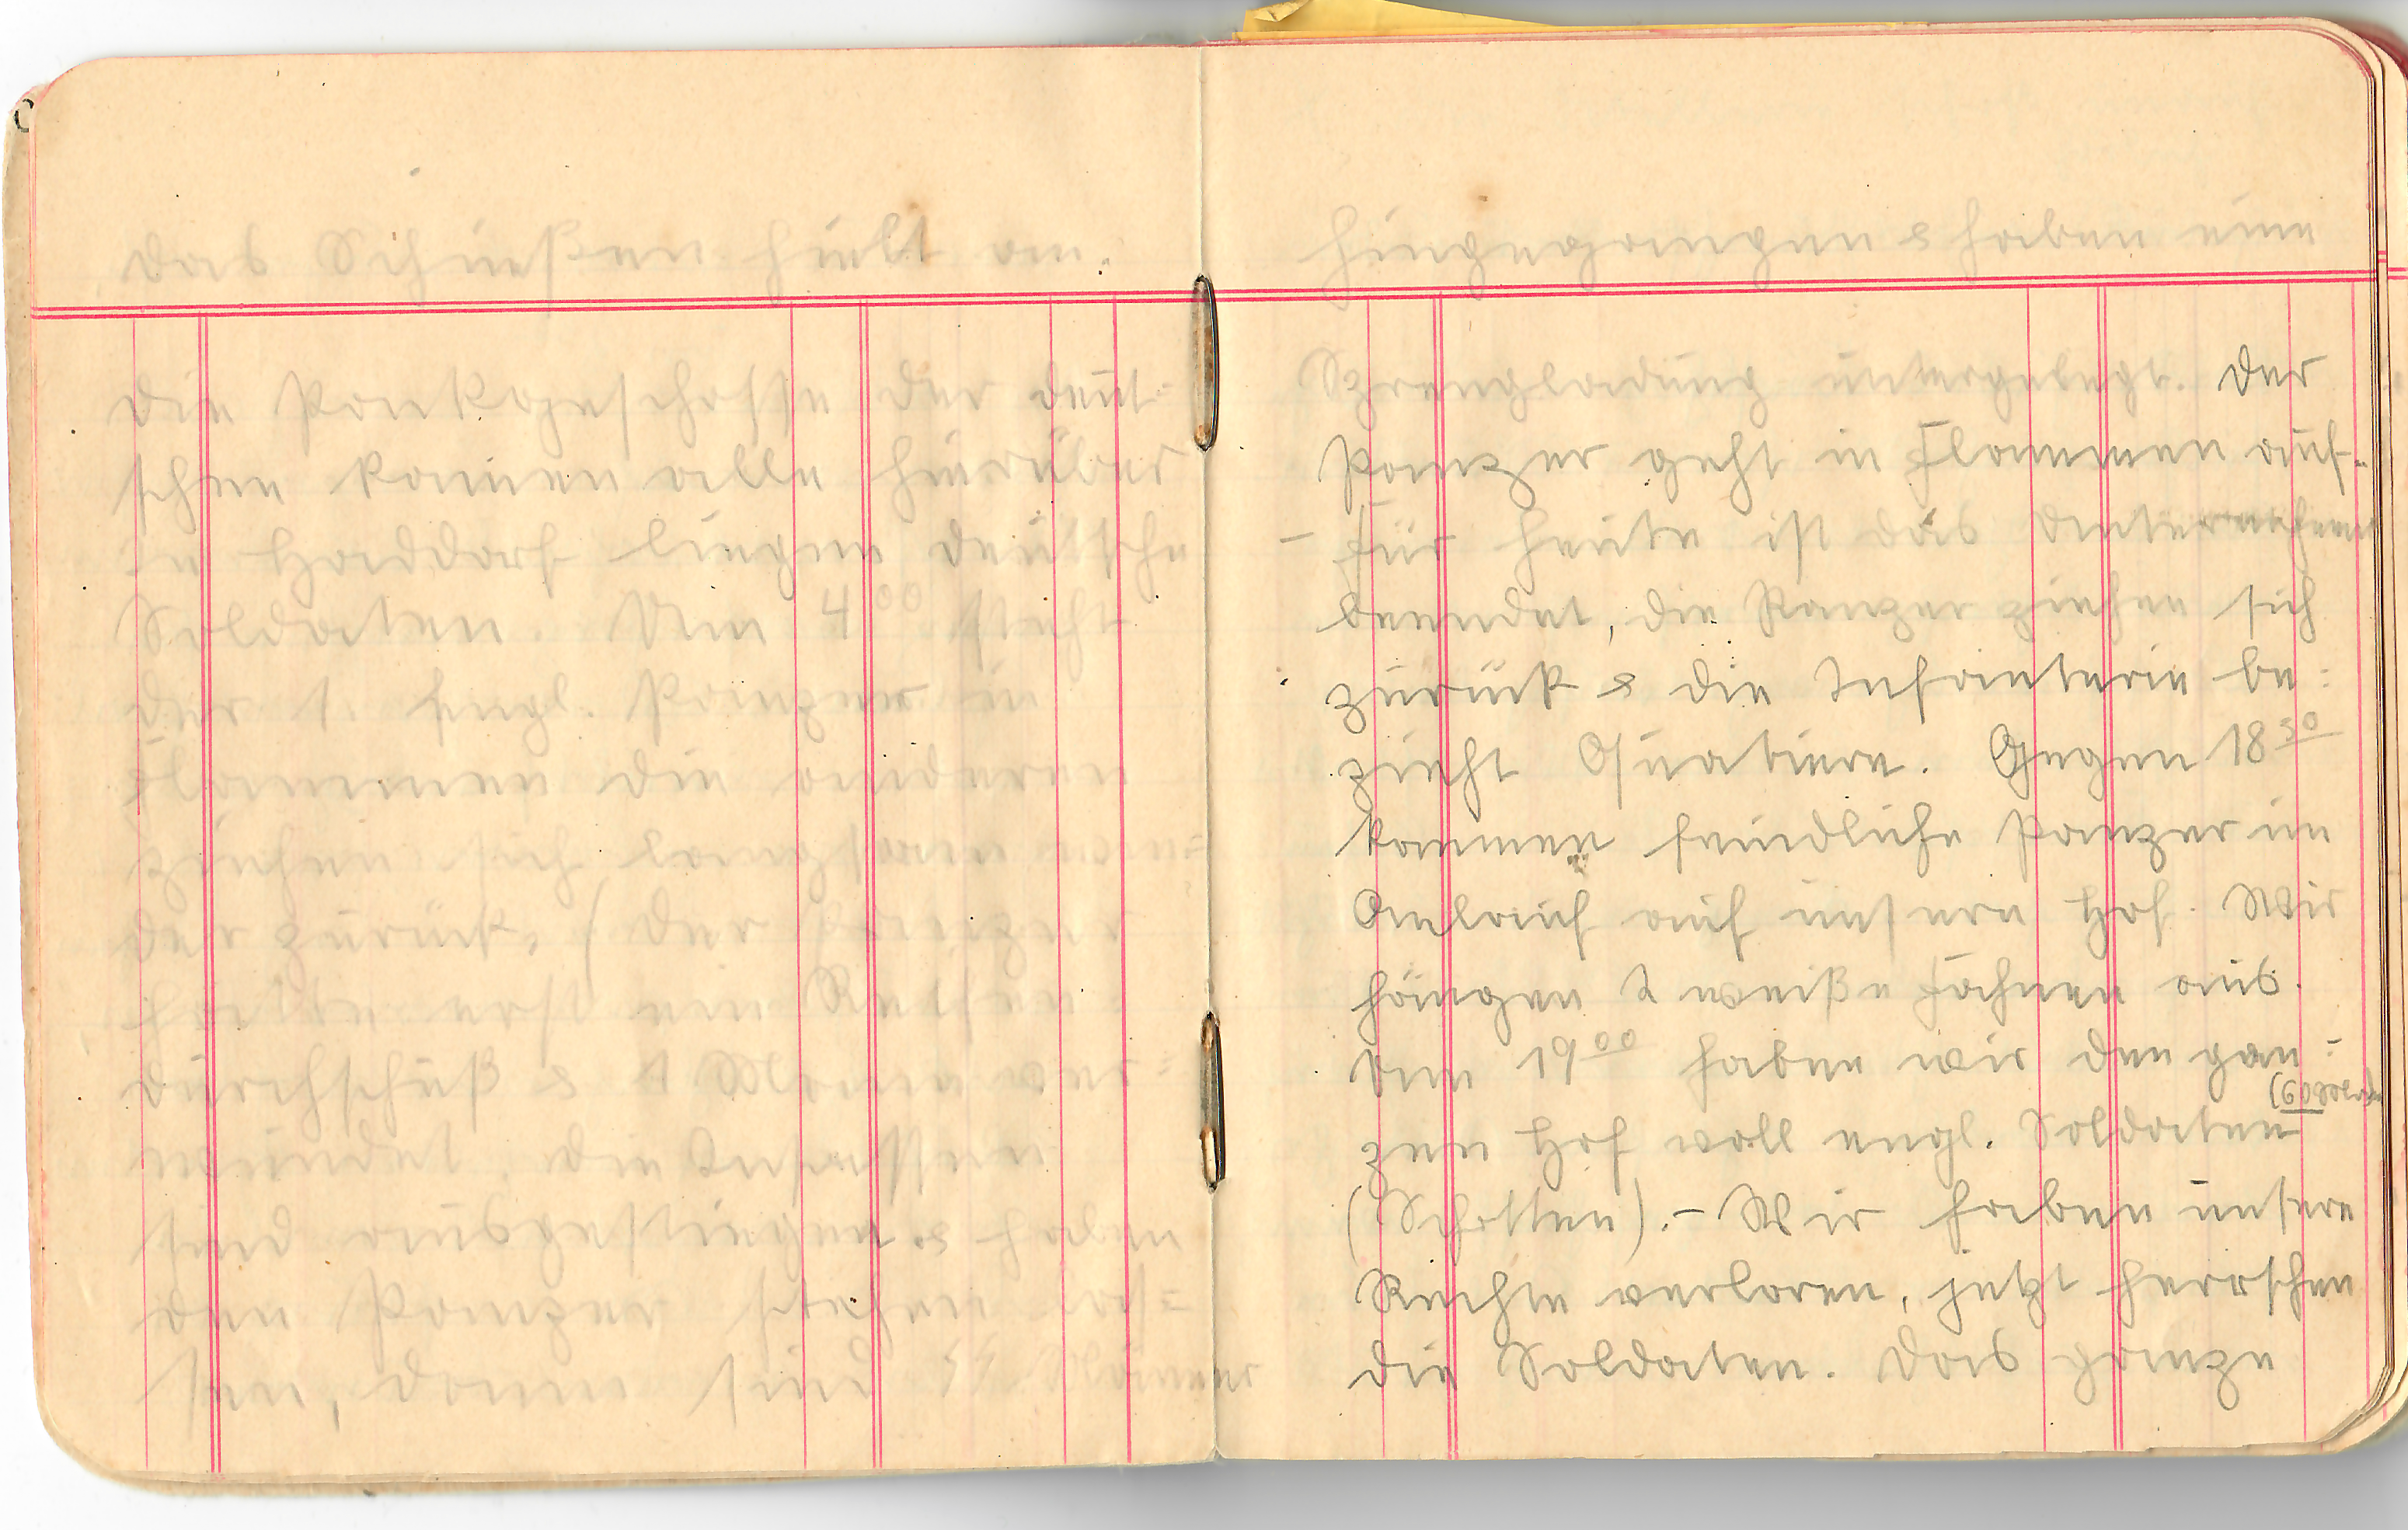 das Schießen hielt an.
Die Pankgeschosse der deut-
schen kamen alle hierüber
in Haiddorf liegen deutsche
Soldaten. Um 4⁰⁰ steht
der 1. engl. Panzer in
Flammen die anderen
ziehen sich langsam wie-
der zurück. / Der Panzer
hatte erst ein Ketten-
durchschuß & 1 Mann ver-
wundet. Die Insassen
sind ausgestiegen & haben
den Panzer stehen las-
sen, dann sind SS Männer
hingegangen & haben eine
Sprengladung untergelegt. Der
Panzer geht in Flammen auf.
- Für heute ist das Unternehmen
beendet, die Panzer ziehen sich
zurück & die Infanterie be-
zieht Quatiere. Gegen 18³⁰
kommen feindliche Panzer im
Anlauf auf unsern Hof. Wir
hängen 2 weiße Fahnen aus.
Um 19⁰⁰ haben wir den gan-
(60 Sold.)
zen Hof voll engl. Soldaten
(Schotten). - Wir haben unsere
Rechte verloren, jetzt herrschen
die Soldaten. Das ganze